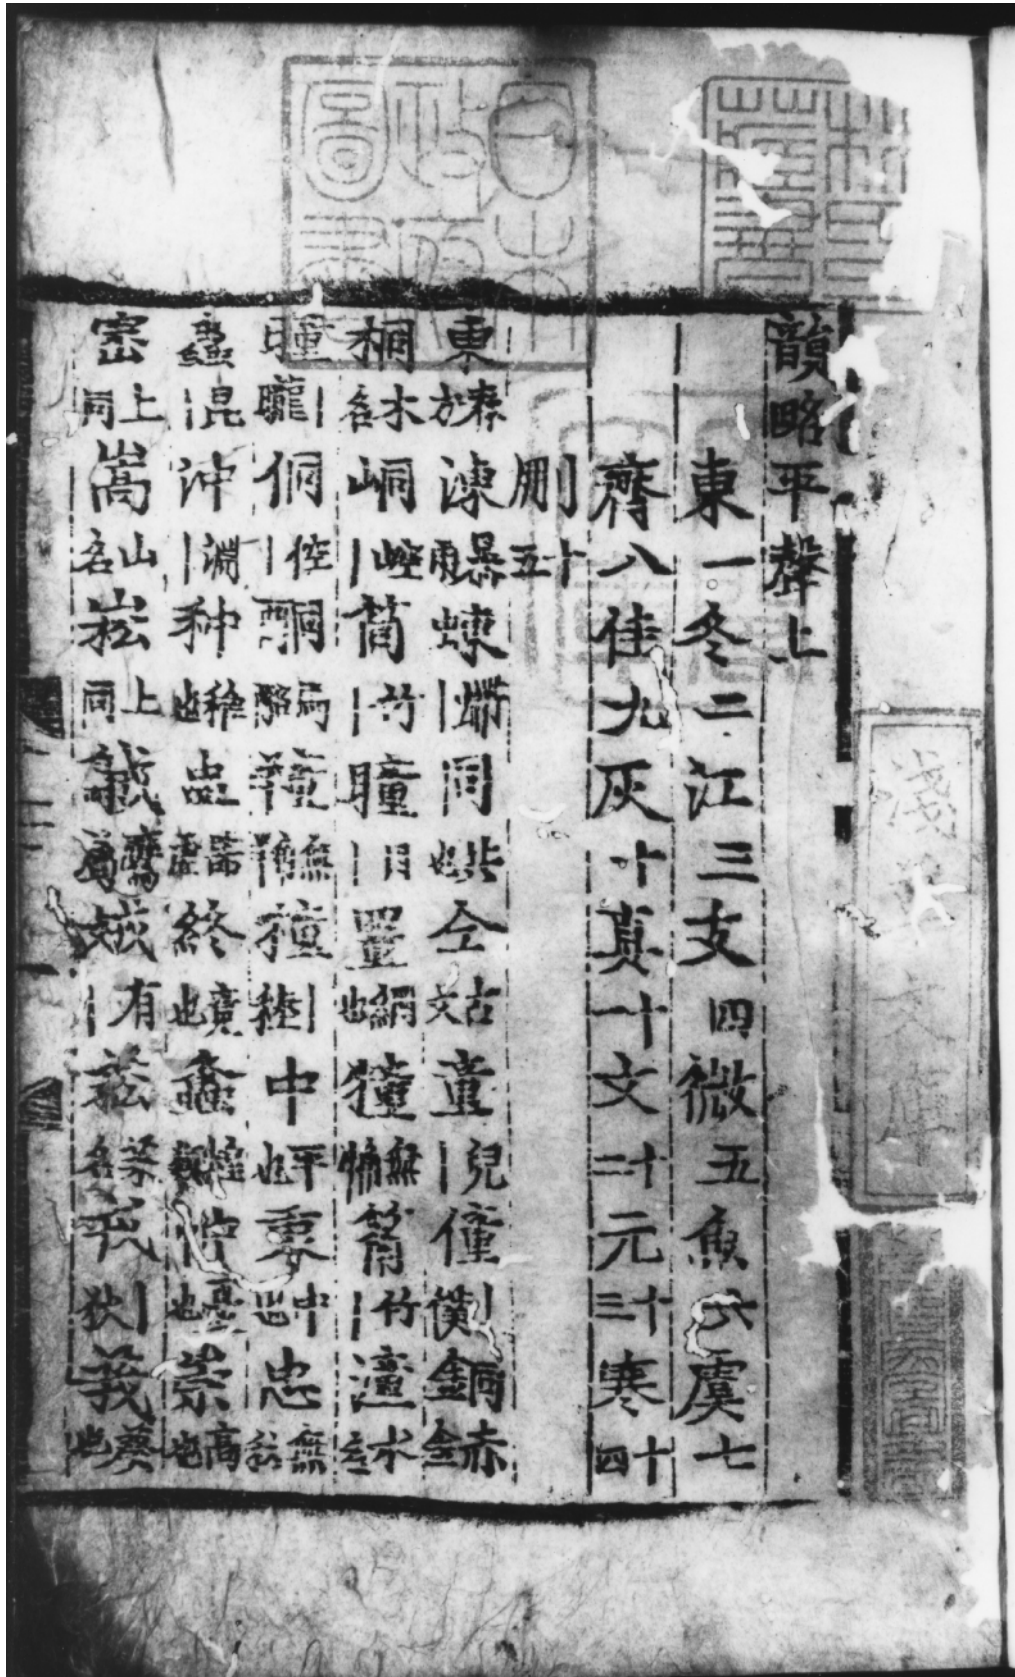 韻略平聲上
東一冬二江三支四微五魚六虞七
齊八佳九灰十真十一文十二元十三寒十四
刪十五
東春方涷暴雨蝀螮｜同共也仝古文童兒｜僮｜僕銅赤金
桐木名峒崆｜筒竹｜瞳目｜罿網也犝無角牛筩竹｜潼水名
曈｜曨侗倥｜酮馬酪無角羊穜｜稑中平也衷中也忠無私
蟲昆｜沖淵｜种稚也盅器虛終竟也螽蝗類忡憂也崇高也
崈上同嵩山名崧上同娀有｜菘菜名戎｜狄葵也
日本政府圖書
淺草文庫